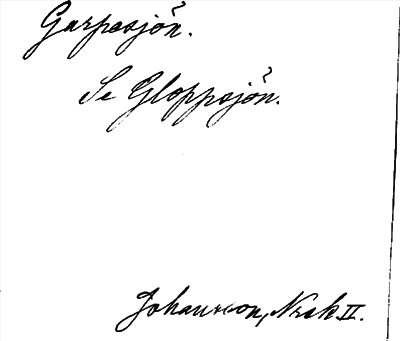 Garpesjön.
Se Gloppsjön.
Johansson, Nrak II.